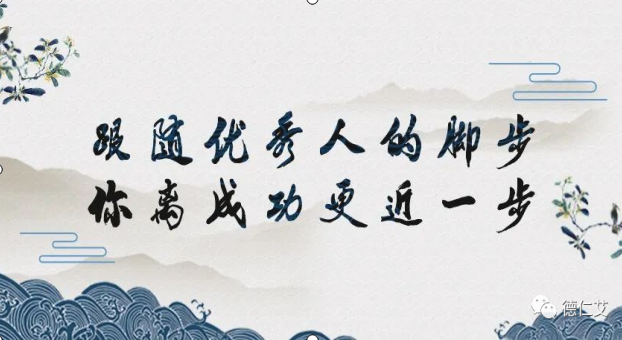 跟随优秀人的脚步
你离成功更近一步
德仁艾